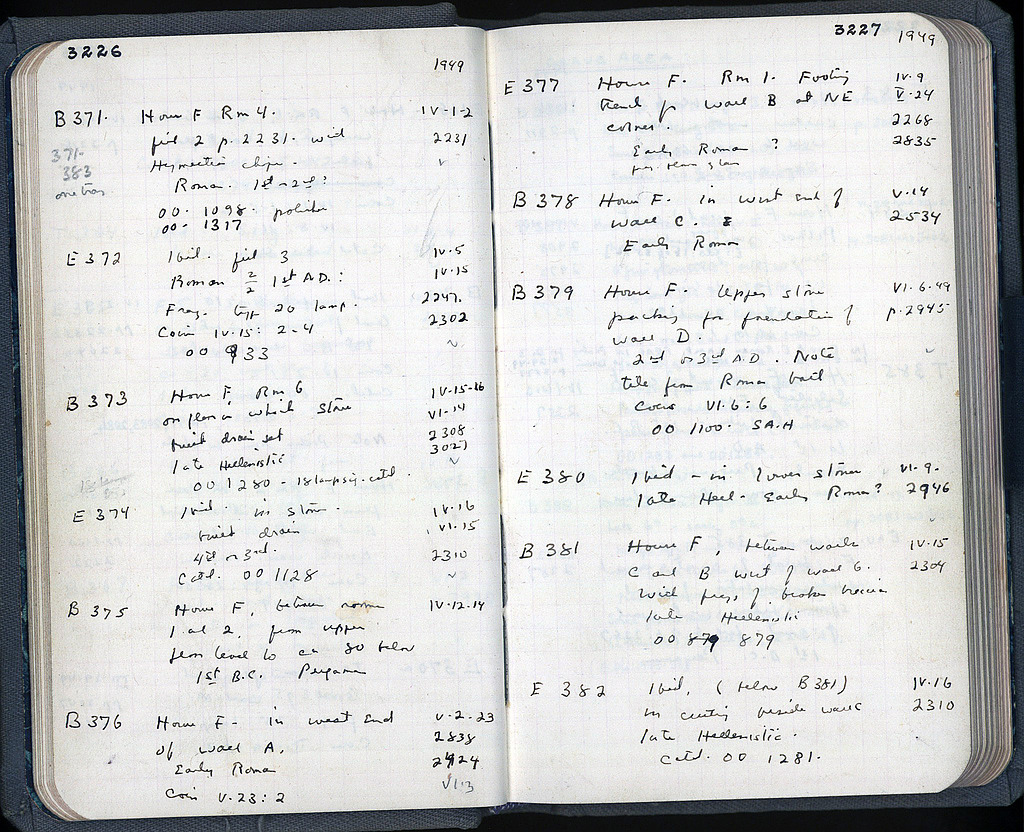 3226
1949
B 371. House F Rm 4. IV-1-2
fill 2 p. 2231. with 2231
Hymettian chips.
Roman. 1st-2nd?
OO. 1098
OO. 1317
371-
383
one tray
E 372 Ibid. fill 3 IV-5
Roman 2/2 1st A.D.: IV-15
Frag. type 20 lamp. 2247.
Coin IV.15: 2-4 2302
OO 933
B 373 House F, Rm 6 IV-15-16
on floor in which stone VI-14
built drain set 2308
late Hellenistic 3027
OO 1280 - 18 lamps catd.
E 374 Ibid. in stone IV-16
built drain VI-15
4th or 3rd. 2310
Catd. OO 1128
B 375 House F, between rooms IV-12-14
1 and 2, from upper
floor level to ca 80 below
1st B.C. Pergamene
B 376 House F - in west end V-2-23
of wall A, 2838
Early Roman 2924
Coin V-23: 2 VI.3
3227
1949
E 377 House F. Rm 1. Footing IV-9
trench for wall B at NE V-24
corner. 2268
Early Roman ? 2835
B 378 House F. in west end of V-14
wall C. 2534
Early Roman
B 379 House F. Upper stone VI-6-49
packing for foundation of p. 2945
wall D.
2nd or 3rd A.D. Note
tile from Roman bath
Coins VI.6: 6
OO 1100. SAH
E 380 Ibid - in lower stones VI-9-
late Hell. Early Roman? 2946
B 381 House F, between walls IV-15
C and B west of wall G. 2304
With frags of broken brazier
late Hellenistic
OO 879 879
E 382 Ibid, (below B 381) IV-16
in cutting beside wall 2310
late Hellenistic.
Catd. OO 1281.